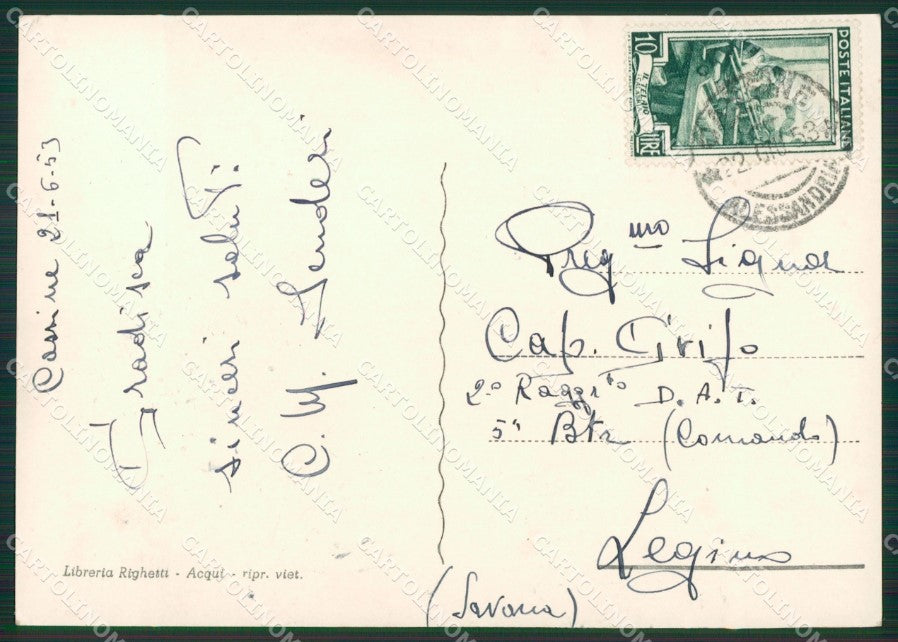 Cassine 21-6-53
Gradisca
sinceri saluti:
C. M.
Preg.mo Signor
Cap. Grifo
2° Ragg.to D. A. T.
5ª Btr (Comando)
Legino
(Savona)
Libreria Righetti - Acqui - ripr. viet.
10
LIRE
POSTE ITALIANE
CASSINE
22. GIU 53
ALESSANDRIA
CARTOLINOMANIA